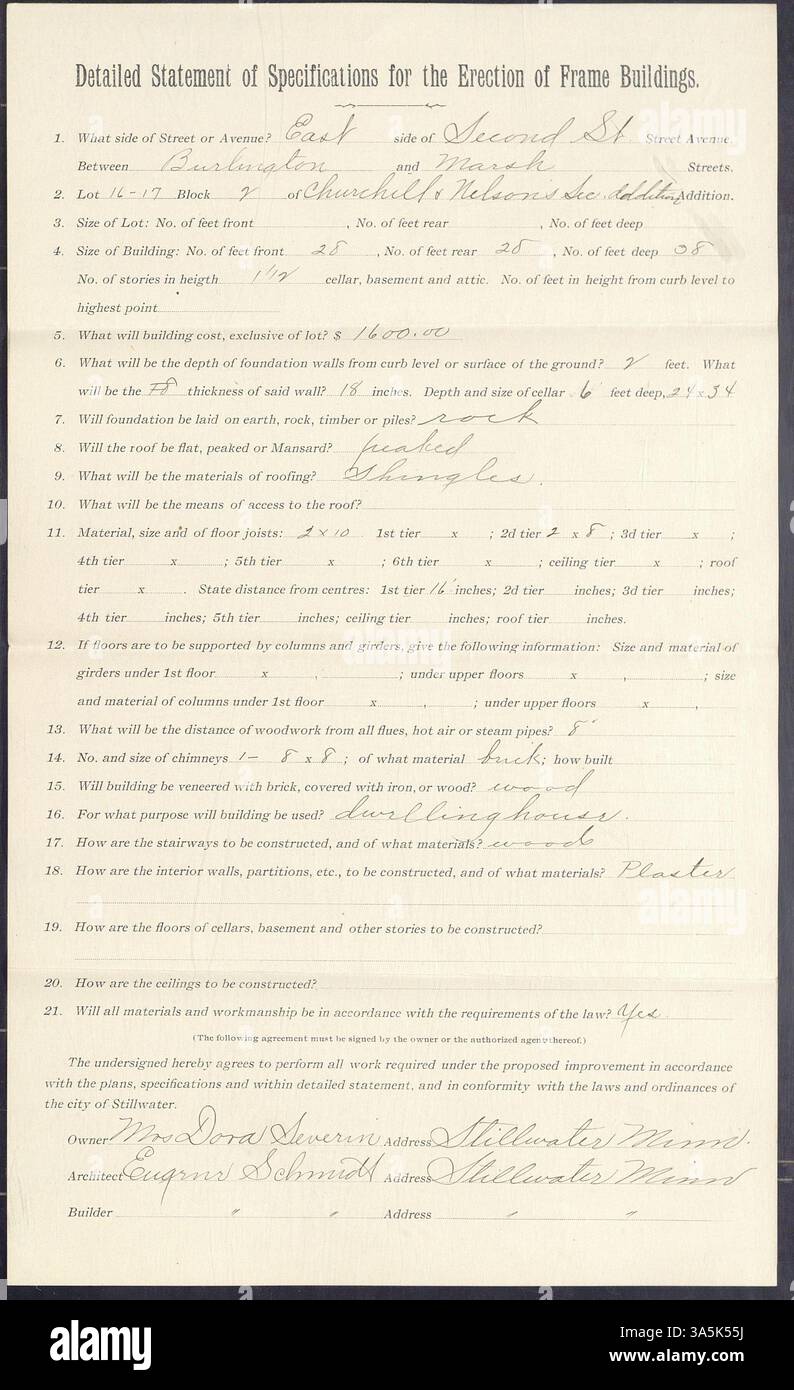 Detailed Statement of Specifications for the Erection of Frame Buildings.
1. What side of Street or Avenue? East side of Second St Street Avenue.
Between Burlington and Marsh Streets.
2. Lot 16-17 Block 2 of Churchill & Nelson's Sec. addition Addition.
3. Size of Lot: No. of feet front , No. of feet rear , No. of feet deep
4. Size of Building: No. of feet front 28 , No. of feet rear 28 , No. of feet deep 38
No. of stories in heigth 1 1/2 cellar, basement and attic. No. of feet in height from curb level to
highest point
5. What will building cost, exclusive of lot? $ 1600.00
6. What will be the depth of foundation walls from curb level or surface of the ground? 2 feet. What
will be the thickness of said wall? 18 inches. Depth and size of cellar 6 feet deep, 24 x 34
7. Will foundation be laid on earth, rock, timber or piles? rock
8. Will the roof be flat, peaked or Mansard? peaked
9. What will be the materials of roofing? Shingles.
10. What will be the means of access to the roof?
11. Material, size and of floor joists: 2 x 10 1st tier x ; 2d tier 2 x 8 ; 3d tier x ;
4th tier x ; 5th tier x ; 6th tier x ; ceiling tier x ; roof
tier x . State distance from centres: 1st tier 16 inches; 2d tier inches; 3d tier inches;
4th tier inches; 5th tier inches; ceiling tier inches; roof tier inches.
12. If floors are to be supported by columns and girders, give the following information: Size and material of
girders under 1st floor x , ; under upper floors x , ; size
and material of columns under 1st floor x , ; under upper floors x ,
13. What will be the distance of woodwork from all flues, hot air or steam pipes? 8"
14. No. and size of chimneys 1- 8 x 8 ; of what material brick; how built
15. Will building be veneered with brick, covered with iron, or wood? wood
16. For what purpose will building be used? dwelling house.
17. How are the stairways to be constructed, and of what materials? wood
18. How are the interior walls, partitions, etc., to be constructed, and of what materials? Plaster
19. How are the floors of cellars, basement and other stories to be constructed?
20. How are the ceilings to be constructed?
21. Will all materials and workmanship be in accordance with the requirements of the law? Yes
(The following agreement must be signed by the owner or the authorized agent thereof.)
The undersigned hereby agrees to perform all work required under the proposed improvement in accordance
with the plans, specifications and within detailed statement, and in conformity with the laws and ordinances of
the city of Stillwater.
Owner Mrs Dora Severin Address Stillwater Minn.
Architect Eugene Schmidt Address Stillwater Minn
Builder " " Address " "
alamy
Image ID: 3A5K55J
www.alamy.com